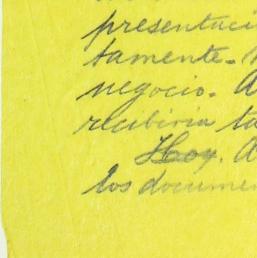 presentaci
tamente.-
negocio. A
recibiria ta
Hoy. A
los documen